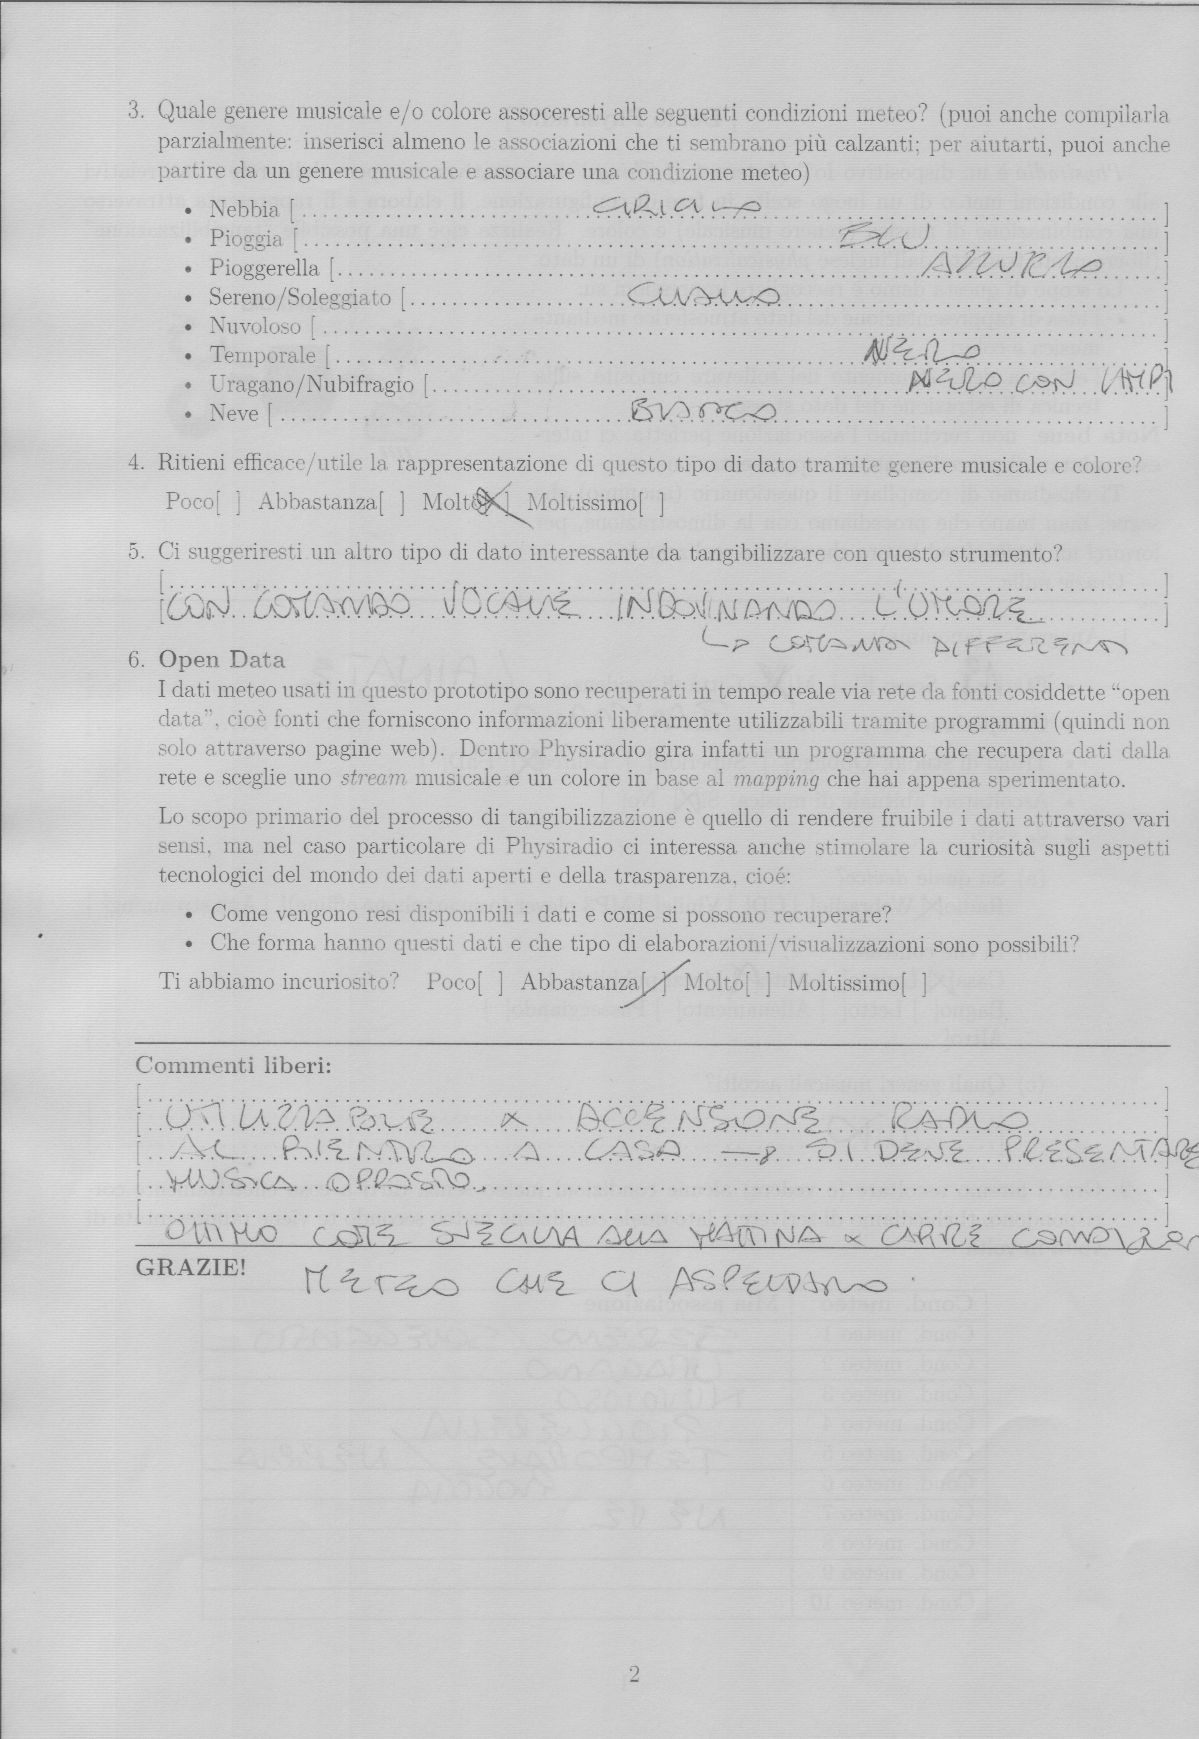 3. Quale genere musicale e/o colore assoceresti alle seguenti condizioni meteo? (puoi anche compilarla
parzialmente: inserisci almeno le associazioni che ti sembrano più calzanti; per aiutarti, puoi anche
partire da un genere musicale e associare una condizione meteo)
• Nebbia [ GRIGIO ]
• Pioggia [ BLU ]
• Pioggerella [ AZZURRO ]
• Sereno/Soleggiato [ ]
• Nuvoloso [ ]
• Temporale [ NERO ]
• Uragano/Nubifragio [ NERO CON LAMPI ]
• Neve [ BIANCO ]
4. Ritieni efficace/utile la rappresentazione di questo tipo di dato tramite genere musicale e colore?
Poco[ ] Abbastanza[ ] Molto[X] Moltissimo[ ]
5. Ci suggeriresti un altro tipo di dato interessante da tangibilizzare con questo strumento?
[ ]
[CON COMANDO VOCALE INDOVINANDO L'UMORE ]
↳ COMANDI DIFFERENTI
6. Open Data
I dati meteo usati in questo prototipo sono recuperati in tempo reale via rete da fonti cosiddette “open
data”, cioè fonti che forniscono informazioni liberamente utilizzabili tramite programmi (quindi non
solo attraverso pagine web). Dentro Physiradio gira infatti un programma che recupera dati dalla
rete e sceglie uno stream musicale e un colore in base al mapping che hai appena sperimentato.
Lo scopo primario del processo di tangibilizzazione è quello di rendere fruibile i dati attraverso vari
sensi, ma nel caso particolare di Physiradio ci interessa anche stimolare la curiosità sugli aspetti
tecnologici del mondo dei dati aperti e della trasparenza, cioé:
• Come vengono resi disponibili i dati e come si possono recuperare?
• Che forma hanno questi dati e che tipo di elaborazioni/visualizzazioni sono possibili?
Ti abbiamo incuriosito? Poco[ ] Abbastanza[/] Molto[ ] Moltissimo[ ]
Commenti liberi:
[ ]
[ UTILIZZABILE x ACCENSIONE RADIO ]
[ AL RIENTRO A CASA → SI DEVE PRESENTARE
[ MUSICA OPPOSTO. ]
[ ]
OTTIMO COME SVEGLIA ALLA MATTINA x CAPIRE CONDIZIONI
GRAZIE! METEO CHE CI ASPETTANO.
2